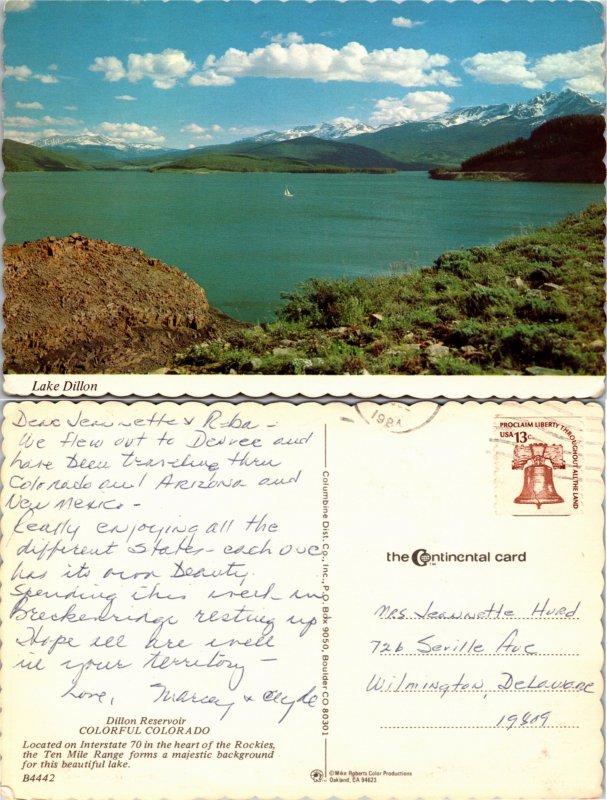 Lake Dillon
Dear Jeannette & Reba -
We flew out to Denver and
have been traveling thru
Colorado and Arizona and
New Mexico -
Really enjoying all the
different States - each one
has its own beauty.
Spending this week in
Breckenridge resting up
Hope all are well
in your territory -
Love, Marcey & Clyde
Dillon Reservoir
COLORFUL COLORADO
Located on Interstate 70 in the heart of the Rockies,
the Ten Mile Range forms a majestic background
for this beautiful lake.
B4442
Columbine Dist. Co., Inc., P.O. Box 9050, Boulder CO 80301
198
PROCLAIM LIBERTY THROUGHOUT ALL THE LAND
USA 13c
the Continental card
TM
Mrs. Jeannette Hurd
726 Seville Ave
Wilmington, Delaware
19809
©Mike Roberts Color Productions
Oakland, CA 94623